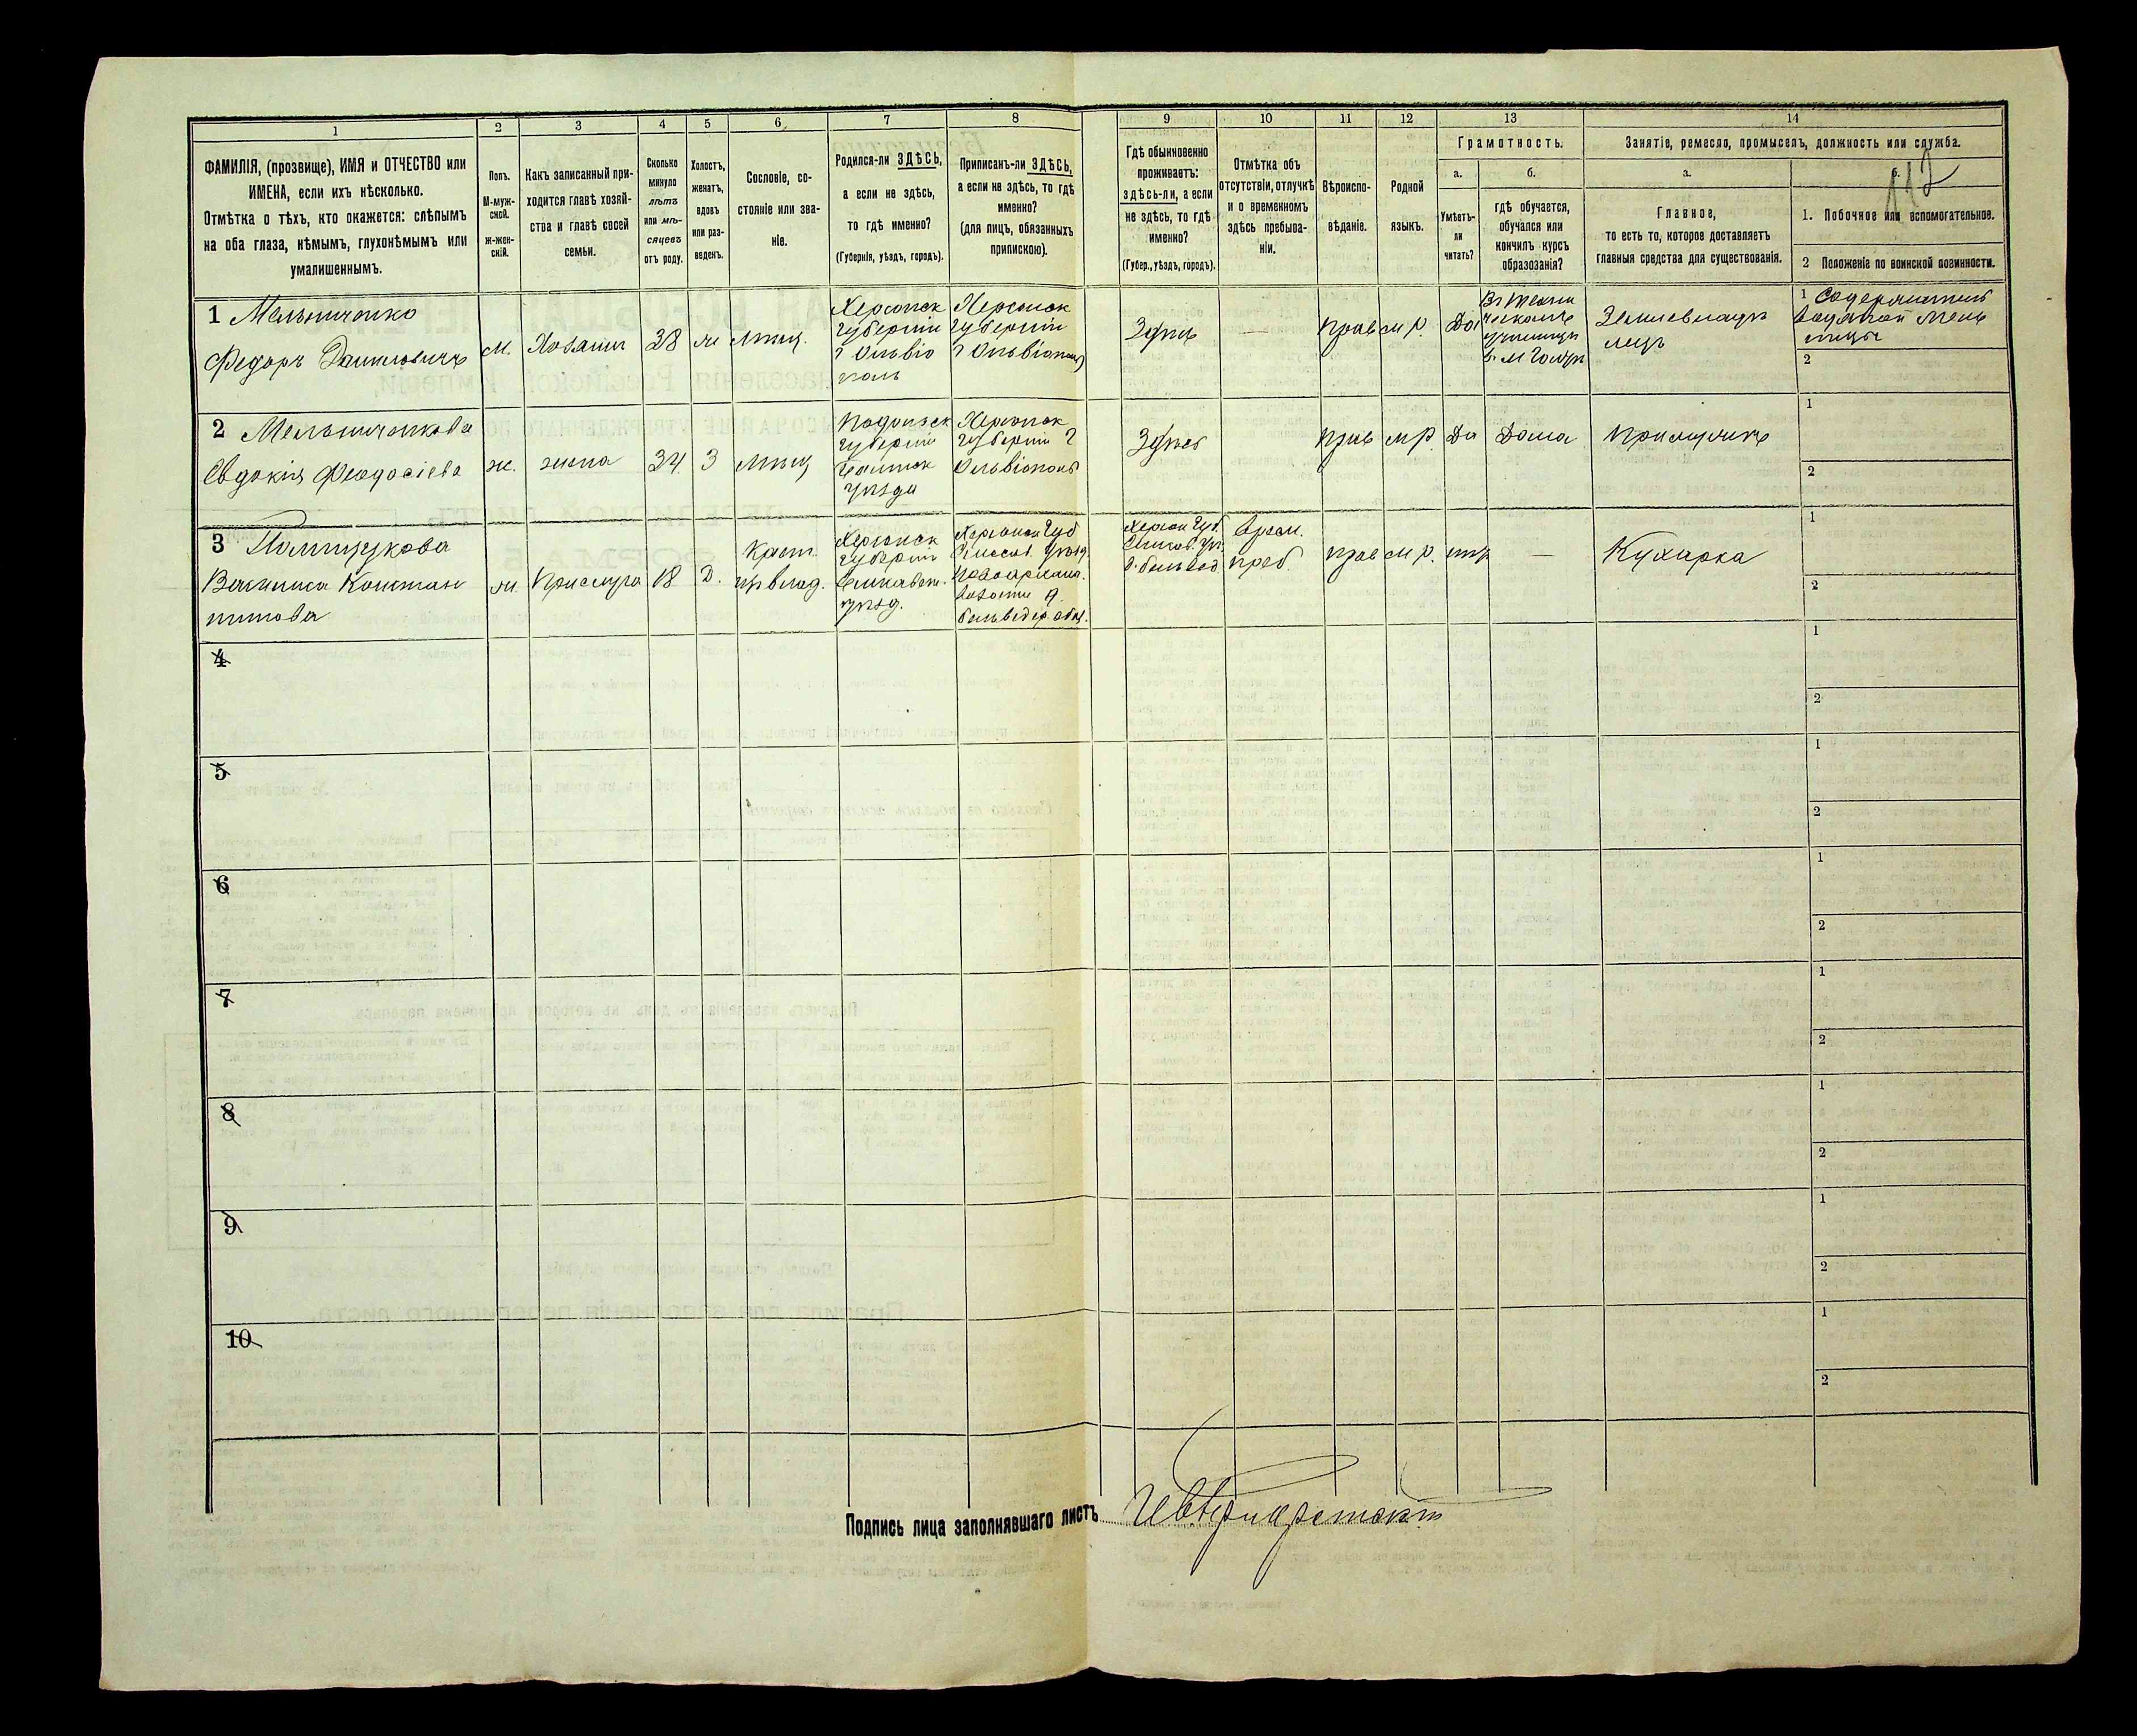 1
2
3
4
5
6
7
8
ФАМИЛІЯ, (прозвище), ИМЯ и ОТЧЕСТВО или
ИМЕНА, если ихъ нѣсколько.
Отмѣтка о тѣхъ, кто окажется: слѣпымъ
на оба глаза, нѣмымъ, глухонѣмымъ или
умалишеннымъ.
Полъ.
М-муж-
ской.
ж-жен-
скій.
Какъ записанный при-
ходится главѣ хозяй-
ства и главѣ своей
семьи.
Сколько
минуло
лѣтъ
или мѣ-
сяцевъ
отъ роду.
Холостъ,
женатъ,
вдовъ
или раз-
веденъ.
Сословіе, со-
стояніе или зва-
ніе.
Родился-ли ЗДѢСЬ,
а если не здѣсь,
то гдѣ именно?
(Губернія, уѣздъ, городъ).
Приписанъ-ли ЗДѢСЬ,
а если не здѣсь, то гдѣ
именно?
(для лицъ, обязанныхъ
припискою).
9
10
11
12
13
14
Гдѣ обыкновенно
проживаетъ:
здѣсь-ли, а если
не здѣсь, то гдѣ
именно?
(Губер., уѣздъ, городъ).
Отмѣтка объ
отсутствіи, отлучкѣ
и о временномъ
здѣсь пребыва-
ніи.
Вѣроиспо-
вѣданіе.
Родной
языкъ.
Грамотность.
а.
б.
Умѣетъ-
ли
читать?
гдѣ обучается,
обучался или
кончилъ курсъ
образованія?
Занятіе, ремесло, промыселъ, должность или служба.
а.
б.
112
Главное,
то есть то, которое доставляетъ
главныя средства для существованія.
1. Побочное или вспомогательное.
2 Положеніе по воинской повинности.
1 Мельниченко
Федоръ Даниловичъ
м.
Хозяин
38
ж
мѣщ.
Херсонск
губерніи
г Ольвіо
поль
Херсонск
губерніи
г Ольвіополь
Здѣсь
—
прав
м р.
Да
Землевладѣ
лецъ
1 Содержатель
водяной мель
ницы
2
2 Мельниченкова
Евдокія Феодосіева
ж.
жена
34
З
мѣщ
Подольск
губерніи
Балтск
уѣзда
Херсонск
губерніи г
Ольвіополь
Здѣсь
прав
м р
Да
Дома
При мужѣ
1
2
3
Константи
нова
Прислуга
18
Д.
Крест.
Херсонск
губерніи
Елисавет.
уѣзд.
Херсонск Губ
Херсон Губ.
Врем.
преб.
прав
м р.
нѣт
—
Кухарка
1
2
4
1
2
5
1
2
6
1
2
7
1
2
8
1
2
9
1
2
10
1
2
Подпись лица заполнявшаго листъ